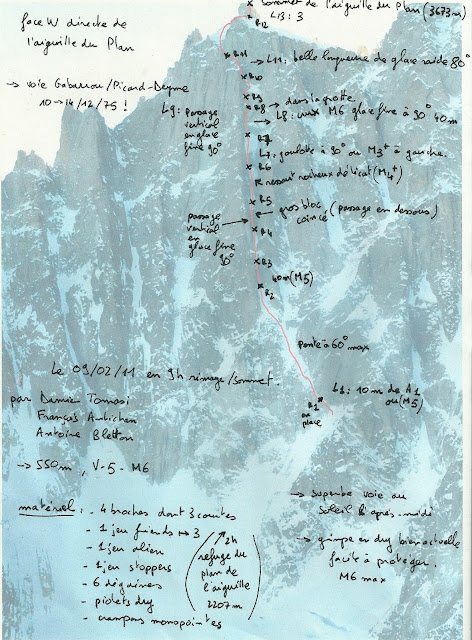 face W directe de
l'aiguille du Plan
sommet de l'aiguille du Plan (3673m)
L13: 3
R12
→ voie Gabarrou/Picard-Deyme
10→14/12/75 !
R11
→ L11: belle longueur de glace raide 80°
R10
R9
L9: passage
vertical
en glace
fine 90°
R8 → dans la grotte
→ L8: M6 glace fine à 90° 40m
R7
L7: goulotte à 90° ou M3+ à gauche.
R6
ressaut rocheux délicat (M4+)
R5
gros bloc
coincé (passage en dessous)
passage
vertical
en
glace fine
90°
R4
R3
40m (M5)
R2
pente à 60° max
Le 09/02/11 en 9h rimaye/sommet.
L1: 10m de A1
ou (M5)
R1
en
place
par Damien Tomasi
François
Antoine Bletton
→ 550m, V-5-M6
→ superbe voie au
soleil l'après-midi
→ grimpe en dry bien actuelle
facile à protéger.
M6 max
matériel: - 4 broches dont 3 courtes
- 1 jeu friends ↔ 3
- 1 jeu alien
- 1 jeu stoppers
- 6 dégaines
- piolets dry
- crampons monopointes
2h
refuge du
plan de
l'aiguille
2207m